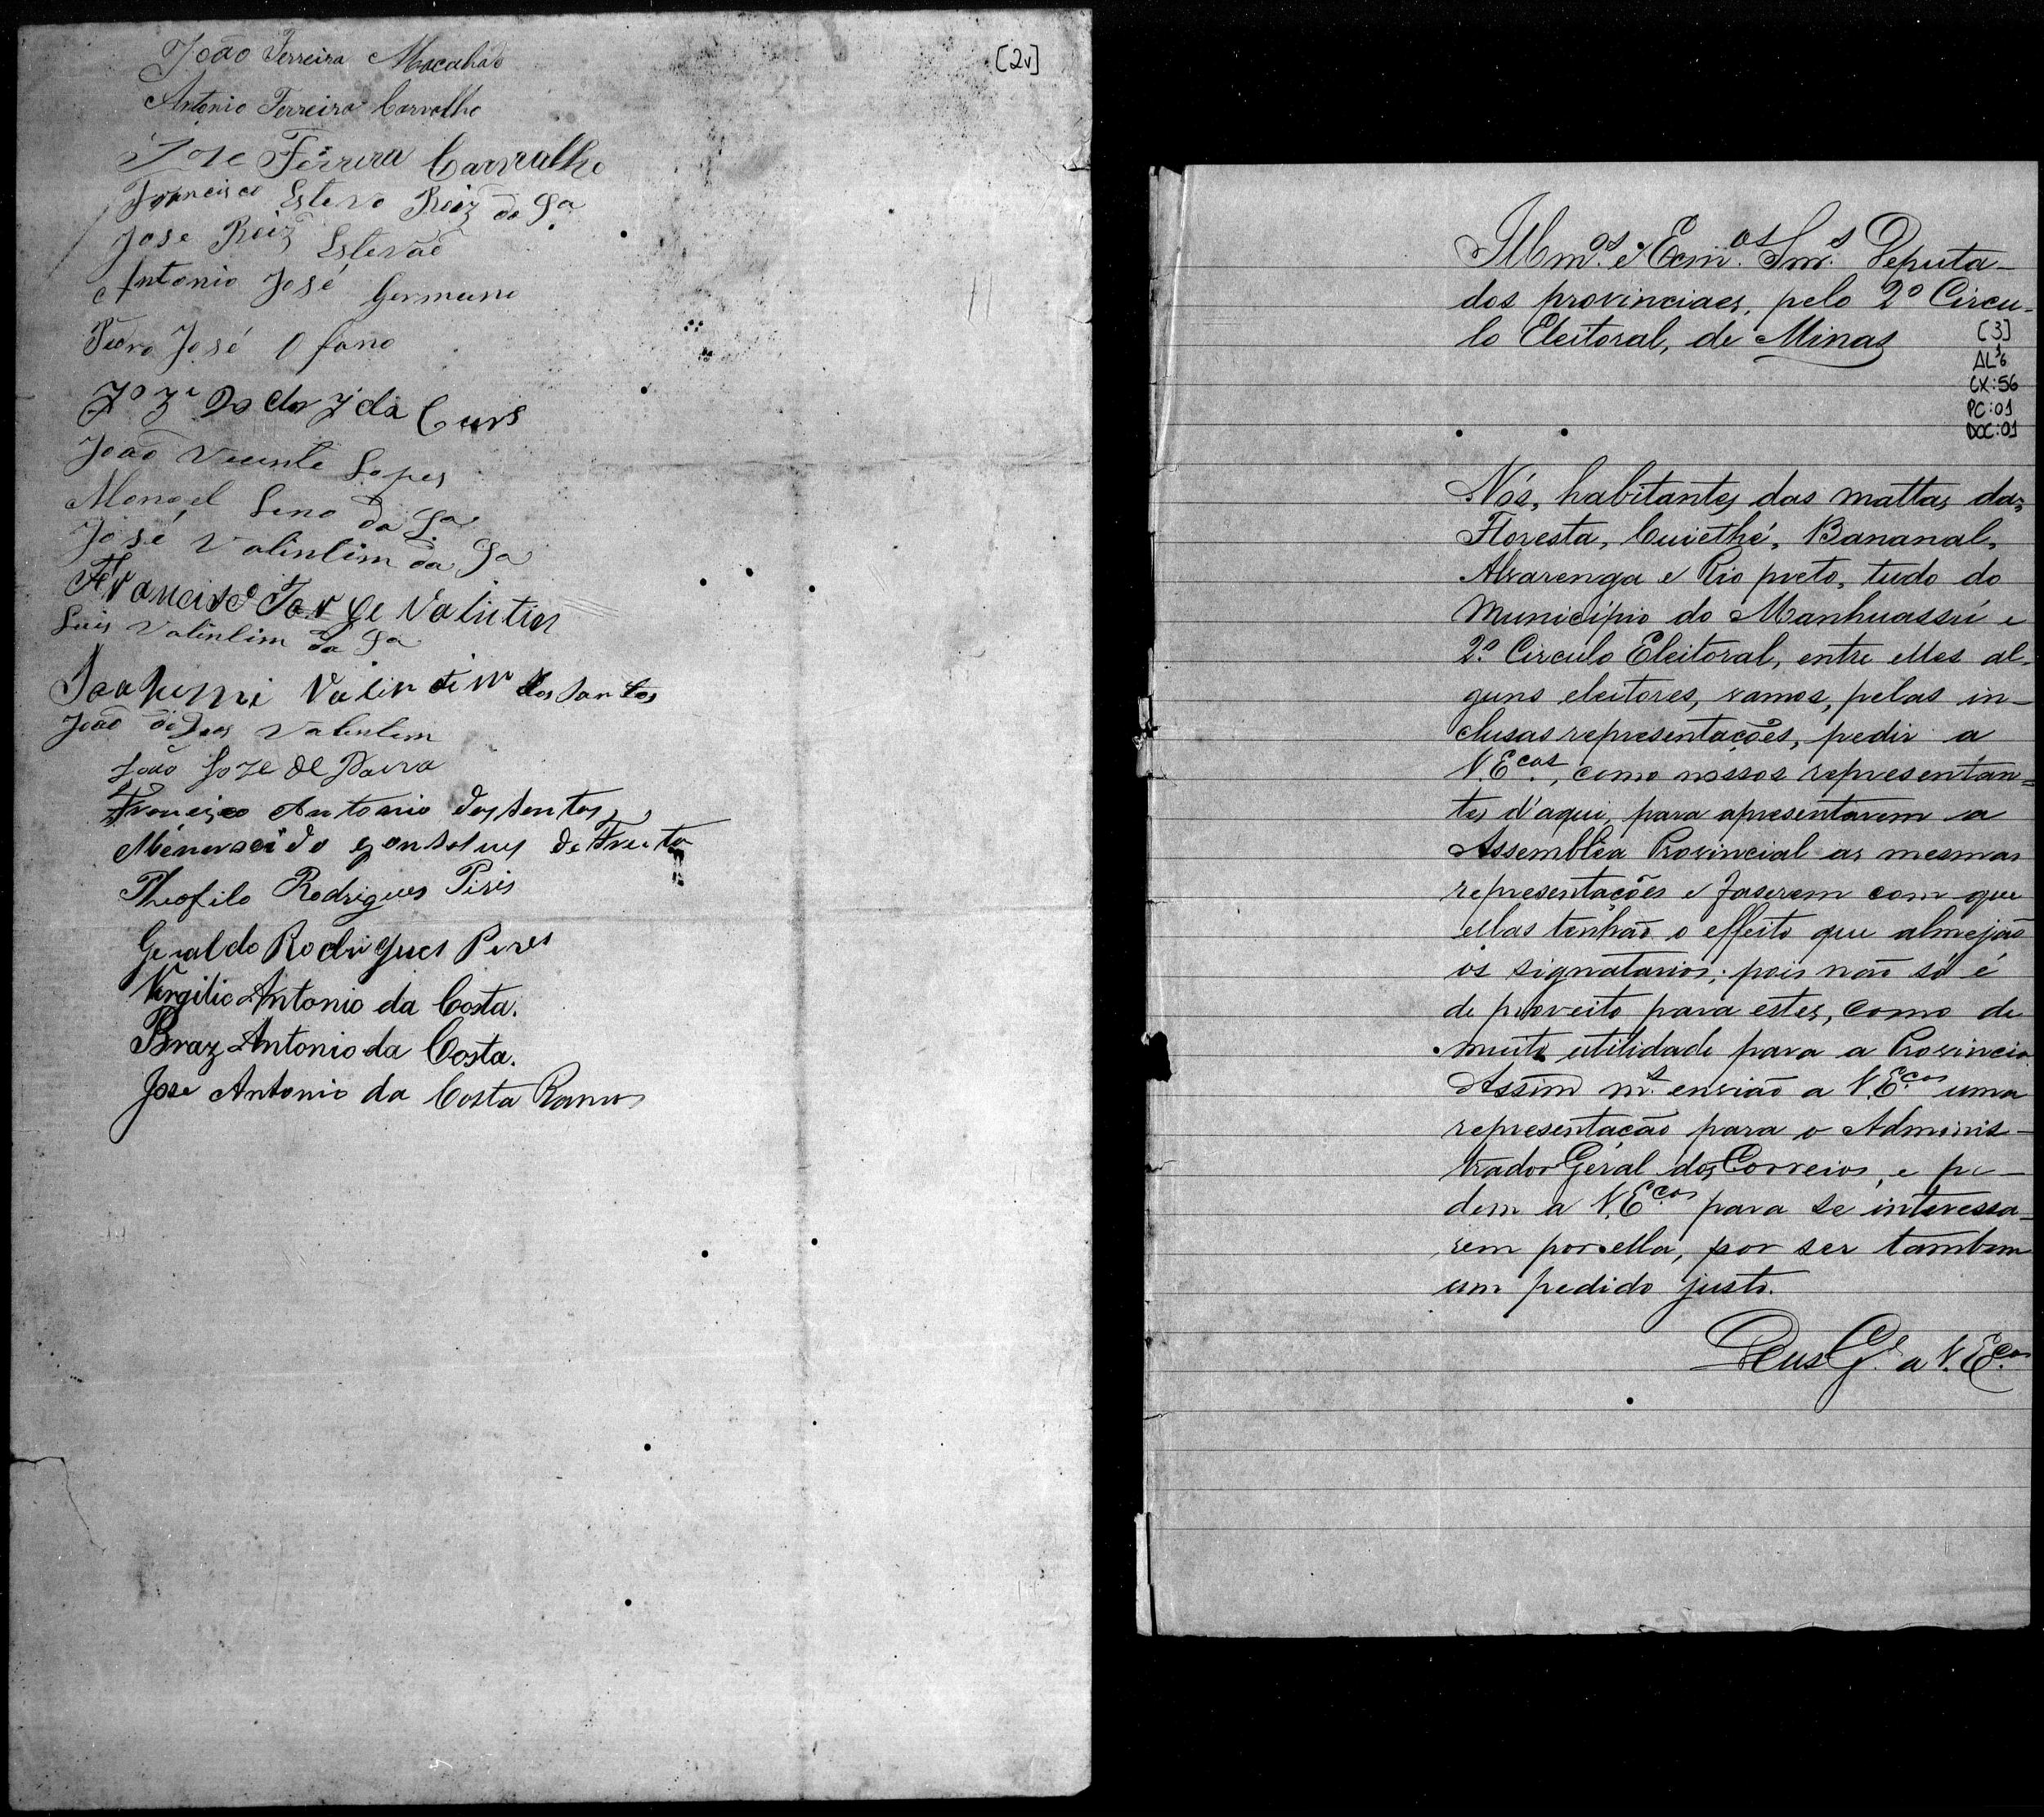 [2v]
João Ferreira
Antonio Ferreira Carvalho
Jose Ferrera Carvalho
Francisco Estevo Reiz da Sa
Jose Reiz Estevão
Antonio José Germano
José
da
João Vicente Lopes
Manoel Lino da Sa
José Valintim da Sa
Francisco Jorge Valintim
Luis Valintim da Sa
Valintim dos santos
João de Valintim
João Joze de Paiva
Francisco Antonio dos santos
de
Theofilo Rodrigues Piris
Geraldo Rodrigues Peres
Virgilio Antonio da Costa.
Braz Antonio da Costa.
Jose Antonio da Costa Ramos
Illmos. e Exmos. Snrs. Deputa-
dos provinciaes, pelo 2º Circu-
lo Eleitoral, de Minas
[3]
AL 1/6
CX:56
PC:01
DOC:01
Nós, habitantes das mattas da
Floresta, Cuiethé, Bananal,
Alvarenga e Rio preto, tudo do
Municipio do Manhuassú e
2º. Circulo Eleitoral, entre elles al-
guns eleitores, vamos, pelas in-
clusas representações, pedir a
V.Ecas., como nossos representan-
tes d'aqui, para apresentarem a
Assemblêa Provincial as mesmas
representações e faserem com que
ellas tenhão o effeito que almejão
os signatarios; pois não só é
de proveito para estes, como de
muita utilidade para a Provincia
Assim ms. envião a V.Ecas uma
representação para o Adminis-
trador Geral dos Correios, e pe-
dem a V.Ecas para se interessa-
rem por ella, por ser tambem
um pedido justo.
Deus Ge. a V.Ecas